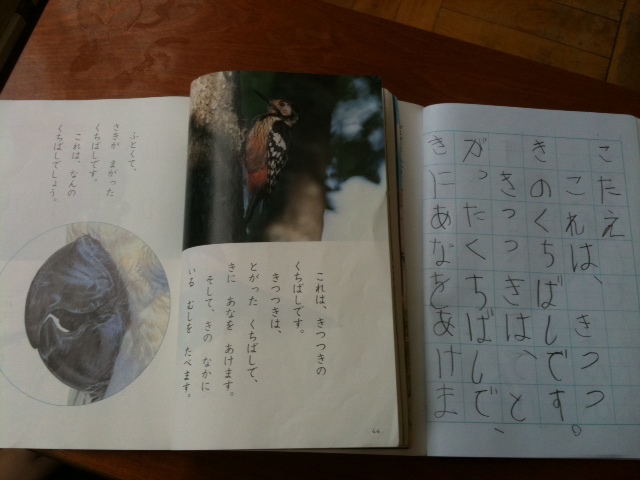 こたえ
これは、きつつ
きのくちばしです。
きつつきは、と
がったくちばしで、
きにあなをあけま
これは、きつつきの
くちばしです。
きつつきは、
とがった くちばしで、
きに あなを あけます。
そして、きの なかに
いる むしを たべます。
ふとくて、
さきが まがった
くちばしです。
これは、なんの
くちばしでしょう。